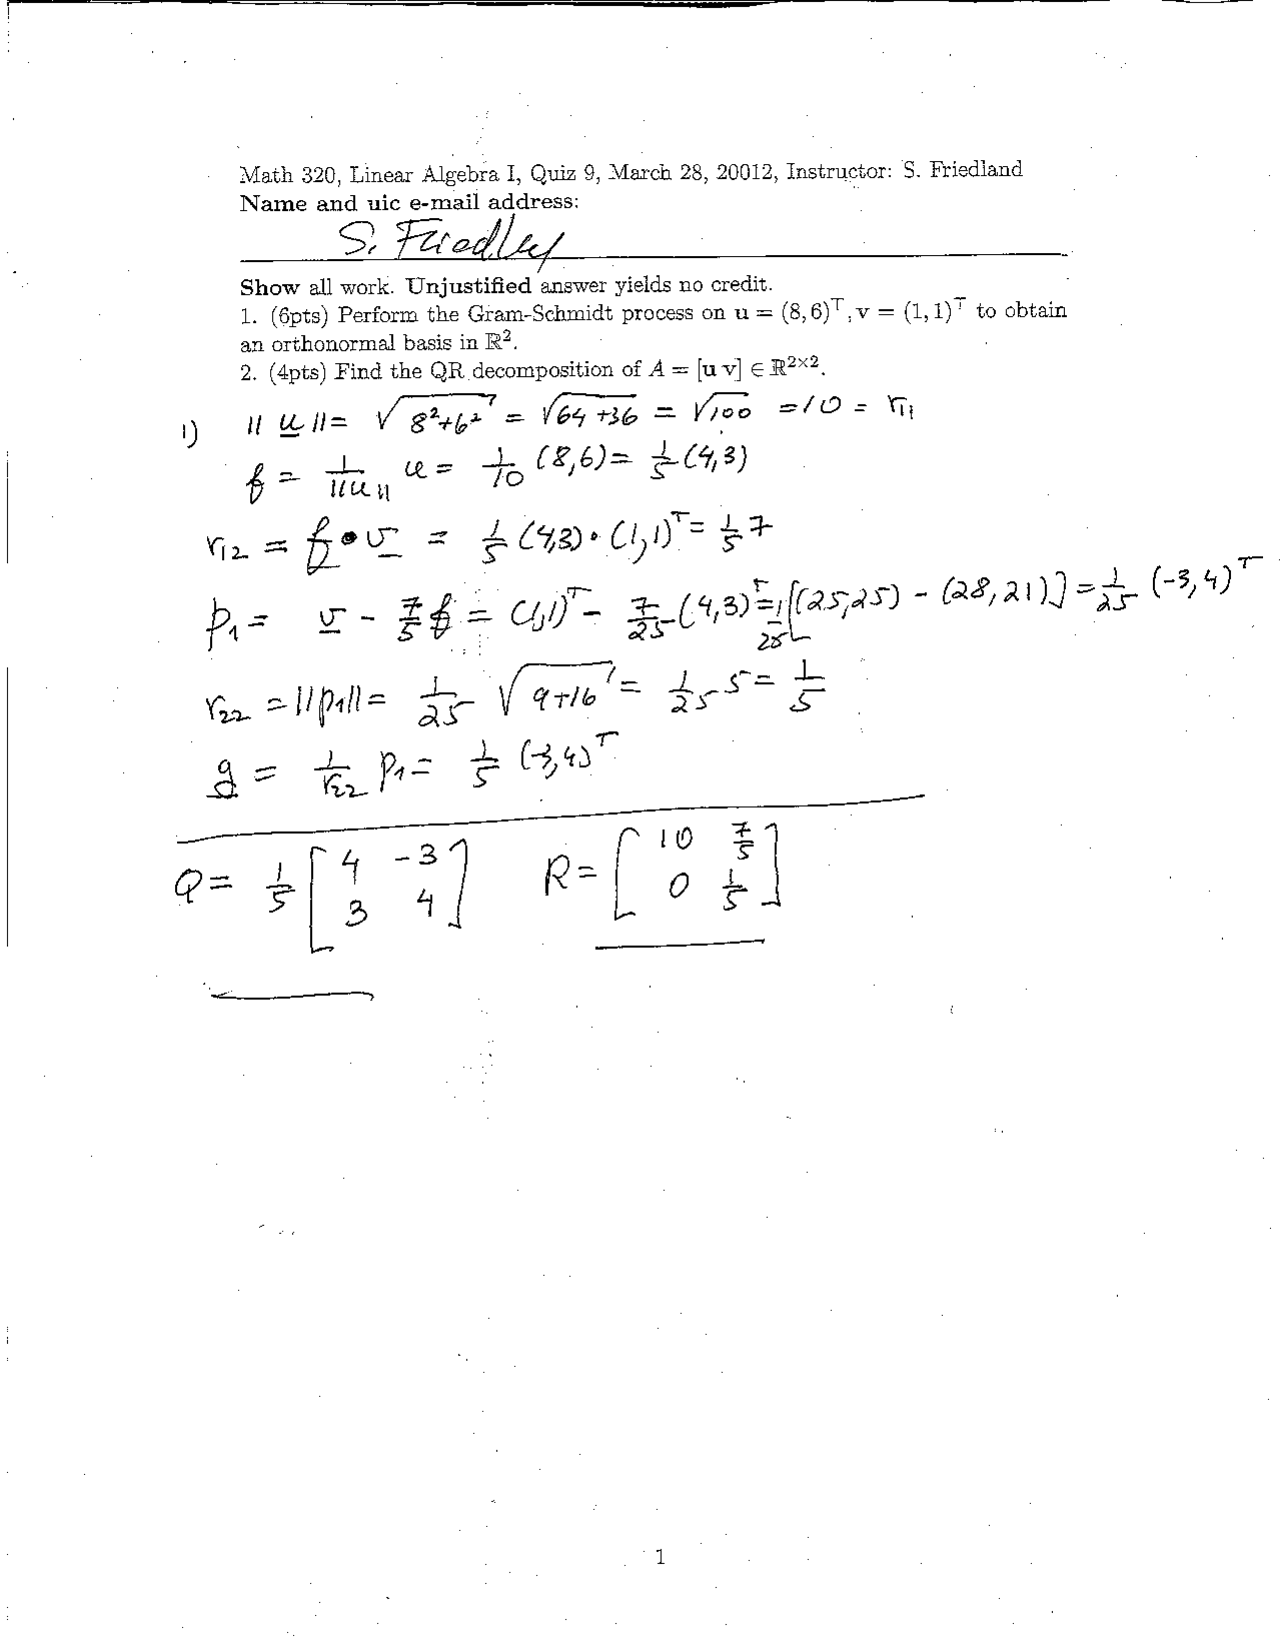 Math 320, Linear Algebra I, Quiz 9, March 28, 20012, Instructor: S. Friedland
Name and uic e-mail address:
S. Friedley
Show all work. Unjustified answer yields no credit.
1. (6pts) Perform the Gram-Schmidt process on u = (8, 6)ᵀ, v = (1, 1)ᵀ to obtain
an orthonormal basis in ℝ².
2. (4pts) Find the QR decomposition of A = [u v] ∈ ℝ²ˣ².
1) ||u|| = √(8²+6²) = √(64+36) = √100 = 10 = r₁₁
f = 1/||u|| u = 1/10 (8,6) = 1/5 (4,3)
r₁₂ = f • v = 1/5 (4,3) • (1,1)ᵀ = 1/5 7
p₁ = v - 7/5 f = (1,1)ᵀ - 7/25 (4,3)ᵀ = 1/25 [(25,25) - (28,21)] = 1/25 (-3,4)ᵀ
r₂₂ = ||p₁|| = 1/25 √(9+16) = 1/25 5 = 1/5
g = 1/r₂₂ p₁ = 1/5 (-3,4)ᵀ
Q = 1/5 [4 -3; 3 4] R = [10 7/5; 0 1/5]
1